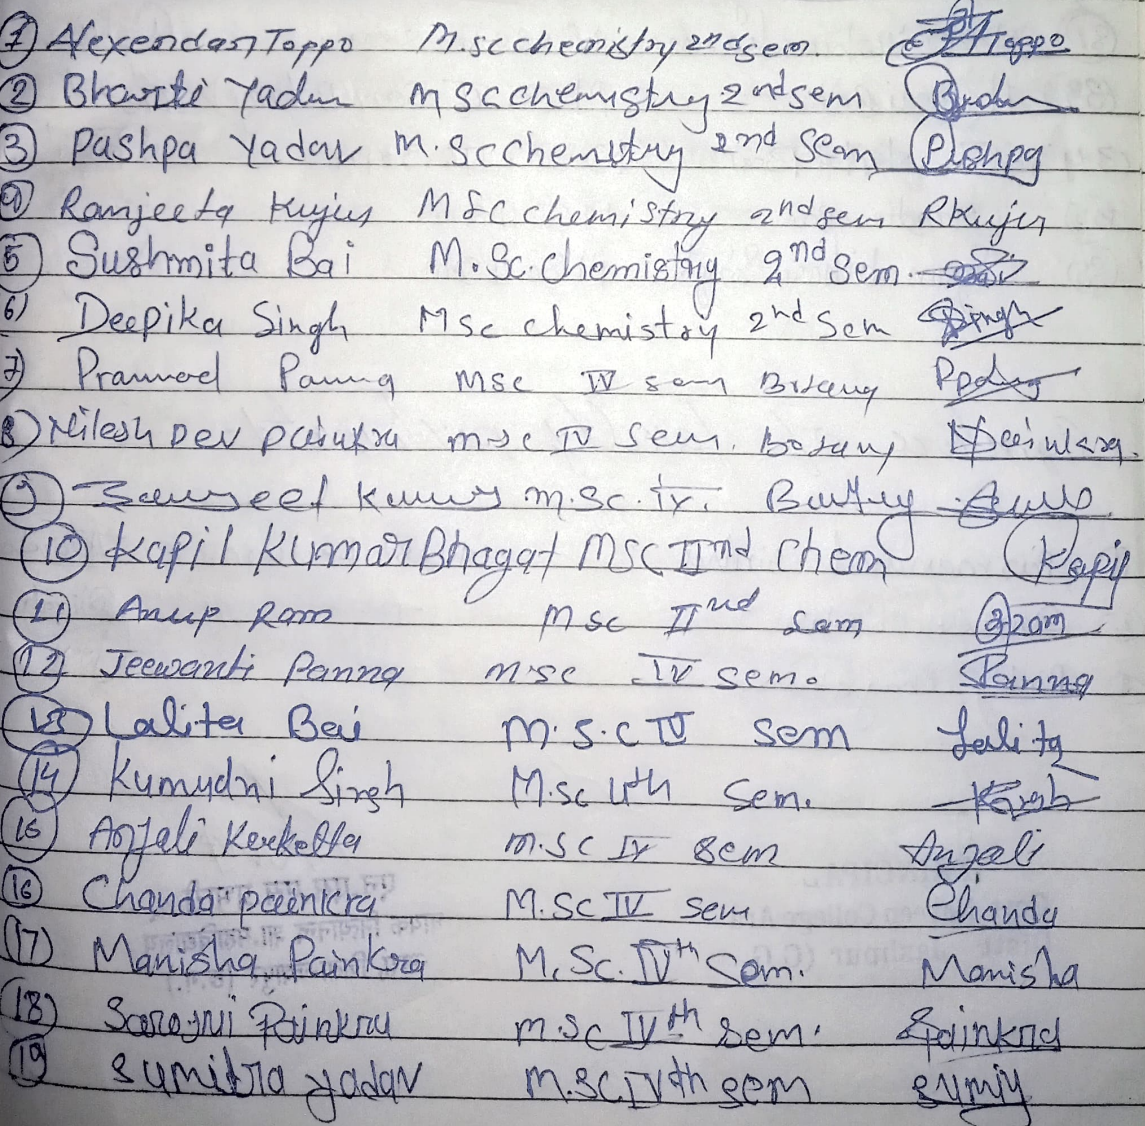 1 Alexendar Toppo M.sc chemistry 2nd sem. Toppo
2 Bharti Yadav M Sc chemistry 2nd sem
3 Pushpa Yadav M. Sc Chemistry 2nd Sem Pushpa
4 Ramjeeta Kujur M Sc chemistry 2nd sem RKujur
5 Sushmita Bai M.Sc. Chemistry 2nd Sem.
6) Deepika Singh MSc chemistry 2nd Sem Singh
7) Pramod Panna Msc IV sem Botany
8) Nilesh Dev Painkra msc IV Sem. Botany Npainkra.
9) Kumar m.Sc. IV. Botany
10 Kapil Kumar Bhagat MSC IInd Chem Kapil
11 Anup Ram Msc IInd Sem Ram
12 Jeewanti Panna M.sc IV sem. Panna
13 Lalita Bai M.S.C IV Sem Lalita
14 Kumudni Singh M.sc 4th Sem.
15 Anjali Kerketta M.SC IV Sem Anjali
16 Chanda painkra M.Sc IV sem Chanda
17) Manisha Painkra M.Sc. IVth Sem. Manisha
18) Sarojni Painkra M.Sc IVth Sem. Spainkra
19 Sumitra yadav M.SC IVth sem